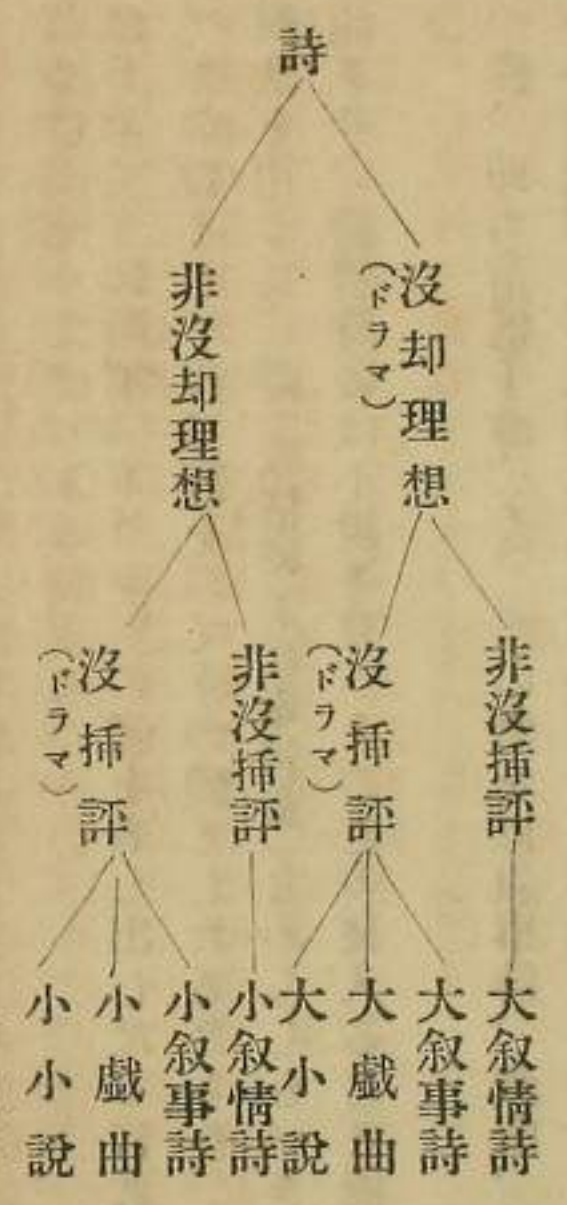 詩
沒却理想
(ドラマ)
非沒却理想
非沒揷評
沒揷評
(ドラマ)
非沒揷評
沒揷評
(ドラマ)
大叙情詩
大叙事詩
大戲曲
大小說
小叙情詩
小叙事詩
小戲曲
小小說